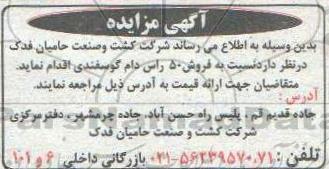 آگهی مزایده
بدین وسیله به اطلاع می رساند شرکت کشت وصنعت حامیان فدک
درنظر داردنسبت به فروش۵۰ راس دام گوسفندی اقدام نماید.
متقاضیان جهت ارائه قیمت به آدرس ذیل مراجعه نمایند.
آدرس:
جاده قدیم قم . پلیس راه حسن آباد. جاده چرمشهر. دفترمرکزی
شرکت کشت و صنعت حامیان فدک
تلفن: ۰۲۱-۵۶۲۳۹۵۷۰.۷۱ بازرگانی داخلی ۶ و ۱۰۱